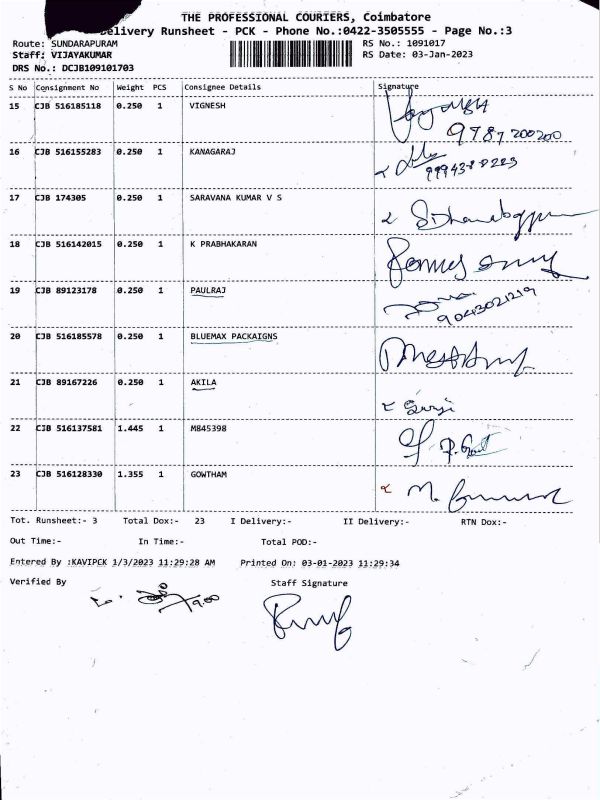 THE PROFESSIONAL COURIERS, Coimbatore
Delivery Runsheet - PCK - Phone No.:0422-3505555 - Page No.:3
Route: SUNDARAPURAM RS No.: 1091017
Staff: VIJAYAKUMAR RS Date: 03-Jan-2023
DRS No.: DCJB109101703
S No Consignment No Weight PCS Consignee Details Signature
15 CJB 516185118 0.250 1 VIGNESH
9787200200
16 CJB 516155283 0.250 1 KANAGARAJ
17 CJB 174305 0.250 1 SARAVANA KUMAR V S
18 CJB 516142015 0.250 1 K PRABHAKARAN
19 CJB 89123178 0.250 1 PAULRAJ
9043021219
20 CJB 516185578 0.250 1 BLUEMAX PACKAIGNS
21 CJB 89167226 0.250 1 AKILA
22 CJB 516137581 1.445 1 M845398
23 CJB 516128330 1.355 1 GOWTHAM
Tot. Runsheet:- 3 Total Dox:- 23 I Delivery:- II Delivery:- RTN Dox:-
Out Time:- In Time:- Total POD:-
Entered By :KAVIPCK 1/3/2023 11:29:28 AM Printed On: 03-01-2023 11:29:34
Verified By Staff Signature